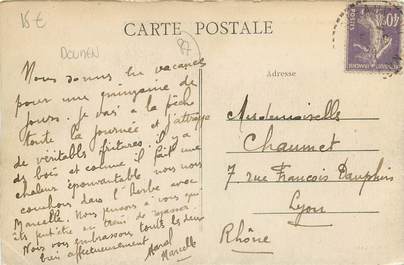 15€
CARTE POSTALE
DOUMEN
87
Adresse
40c
POSTES
Nous sommes en vacances
pour une quinzaine de
jours. Je vais à la pêche
toute la journée et j'attrape
de véritables fritures. il y a
des bois et comme il fait une
chaleur épouvantable nous nous
couchons dans l'herbe avec
Marcelle. Nous pensons à vous qui
êtes peut-être en train de repasser.
Nous vous embrassons toutes les deux
bien affectueusement
Marcelle
Mesdemoiselles
Chaumet
7 rue François Dauphin
Lyon
Rhône